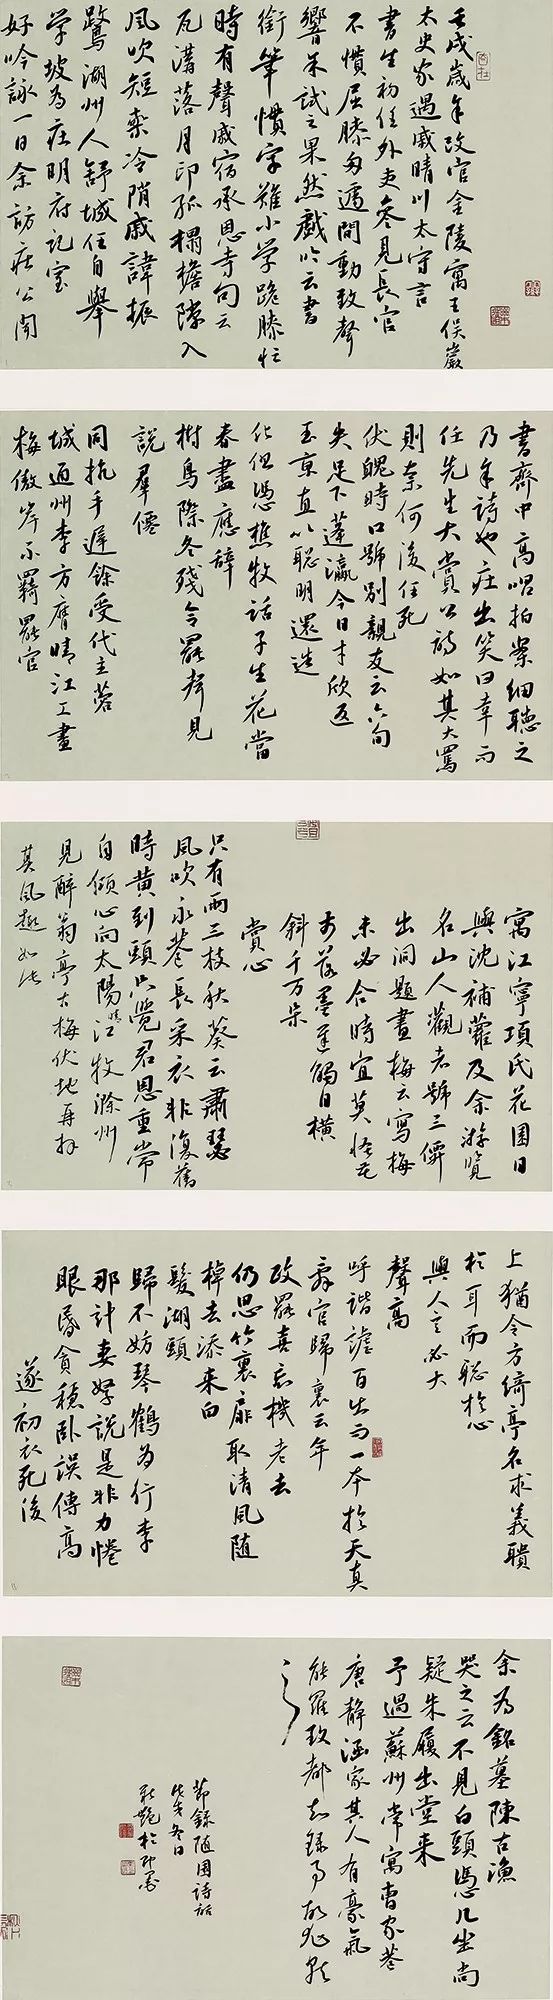 壬戌歲余改官金陵寓王俣巖
太史家遇戚晴川太守言
書生初任外吏參見長官
不慣屈膝匆遽間動致聲
響余試之果然戲吟云書
銜筆慣字難小學跪膝忙
時有聲戚宿承恩寺句云
瓦溝落月印孤榻檐隙入
風吹短檠冷隋戚諱振
鷺湖州人舒城任自舉
學坡為莊明府記室
好吟詠一日余訪莊公聞
書齋中高唱拍案細聽之
乃余詩也莊出笑曰幸而
任先生大賞公詩如其大罵
則奈何後任死
伏魄時口號別親友云六旬
失足下蓬瀛今日才欣返
玉京直以聰明還造
化但憑樵牧話子生花當
春盡應辭
樹鳥際冬殘令罷聲見
說群僊
同抗手遲餘受代主蓉
城通州李方膺晴江工畫
梅傲岸不羈罷官
寓江寧項氏花園日
與沈補蘿及余游覽
名山人觀者號三僊
出洞題畫梅云寫梅
未必合時宜莫怪花
前落墨遲觸目橫
斜千萬朵
賞心
只有兩三枝秋葵云肅瑟
風吹永巷長采衣非復舊
時黃到頭只覺君恩重常
自傾心向太陽晴江牧滁州
見醉翁亭古梅伏地再拜
其風趣如此
上猶令方綺亭名求義聵
於耳而聰於心
與人言必大
聲高
呼諧謔百出而一本於天真
辭官歸裏云年
政罷喜忘機老去
仍思竹裏扉取清風隨
棹去添來白
髮湖頭
歸不妨琴鶴為行李
那計妻孥說是非力惓
眼昏貪穩臥誤傳高
遂初衣死後
余為銘墓陳古漁
哭之云不見白頭憑几坐尚
疑朱履出堂來
予過蘇州常寓曹家巷
唐靜涵家其人有豪氣
能羅致都知錄事故尤暱
之
節錄隨園詩話